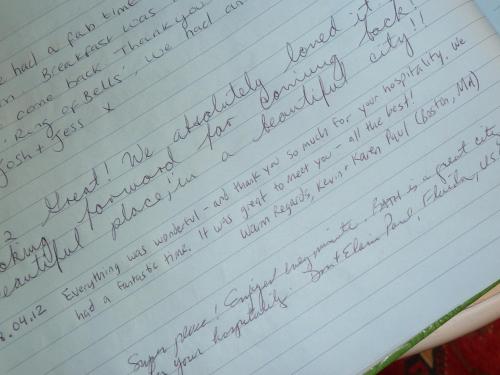 e had a fab time
Breakfast was
come back. Thank you
'Ring of Bells', we had an
Josh + Jess x
2 Great! We absolutely loved it!
oking forward for coming back!
eautiful place, in a beautiful city!!
8.04.12 Everything was wonderful - and thank you so much for your hospitality. We
had a fantastic time. It was great to meet you - all the best!
Warm Regards, Kevin + Karen Paul (Boston, MA)
Super place! Enjoyed every minute. BATH is a great city
your hospitality. Jim + Elain Paul, Florida, US